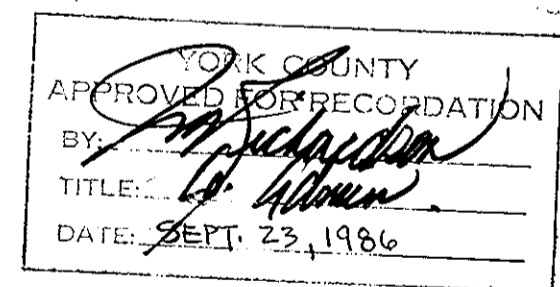 YORK COUNTY
APPROVED FOR RECORDATION
BY: Richardson
TITLE: Co. Admin.
DATE: SEPT. 23, 1986